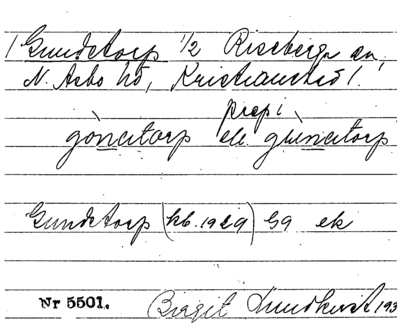 1 Gundstorp 1/2 Riseberga sn,
N. Asbo hd, Kristianstad l.
prep i
gònstorp el. gùnstorp
Gundstorp (kb. 1929) Gg ek
Nr 5501. Birgit Lundkvist 193